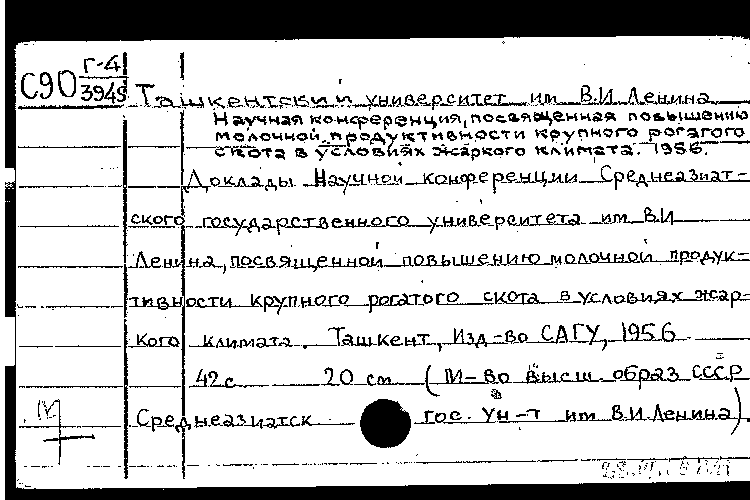 С90 Г-4
3949
Ташкентский университет им В.И Ленина
Научная конференция, посвященная повышению
молочной продуктивности крупного рогатого
скота в условиях жаркого климата. 1956.
Доклады Научной конференции Среднеазиат-
ского государственного университета им В.И
Ленина, посвященной повышению молочной продук-
тивности крупного рогатого скота в условиях жар-
кого климата. Ташкент, Изд-во САГУ, 1956
42 с 20 см (М-во высш. образ СССР
Среднеазиатск гос. Ун-т им В.И.Ленина).